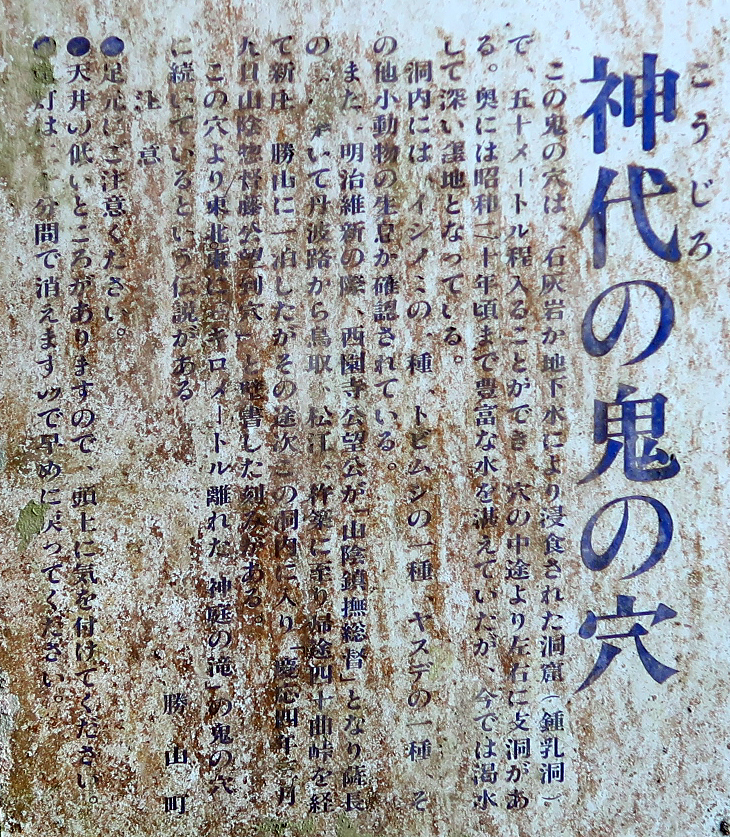 こうじろ
神代の鬼の穴
この鬼の穴は、石灰岩が地下水により浸食された洞窟(鍾乳洞)
で、五十メートル程入ることができ、穴の中途より左右に支洞があ
る。奥には昭和二十年頃まで豊富な水を湛えていたが、今では渇水
して深い窪地となっている。
洞内には、イシノミの一種、トビムシの一種、ヤスデの一種、そ
の他小動物の生息が確認されている。
また、明治維新の際、西園寺公望公が「山陰鎮撫総督」となり薩長
の いて丹波路から鳥取、松江、杵築に至り帰途四十曲峠を経
て新庄、勝山に一泊したがその途次この洞内に入り「慶応四年三月
九日山陰惣督藤公望到穴」と 書した刻みがある。
この穴より東北東に キロメートル離れた「神庭の滝」の鬼の穴
に続いているという伝説がある
勝山町
注意
●足元にご注意ください。
●天井の低いところがありますので、頭上に気を付けてください。
● 灯は、 十分間で消えますので早めに戻ってください。